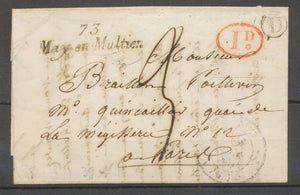 73
May-en-Multien
1D.
D
2
Monsieur
Braillon Poitevin
Md. quincailler quai de
La Mégisserie N° 12
a Paris